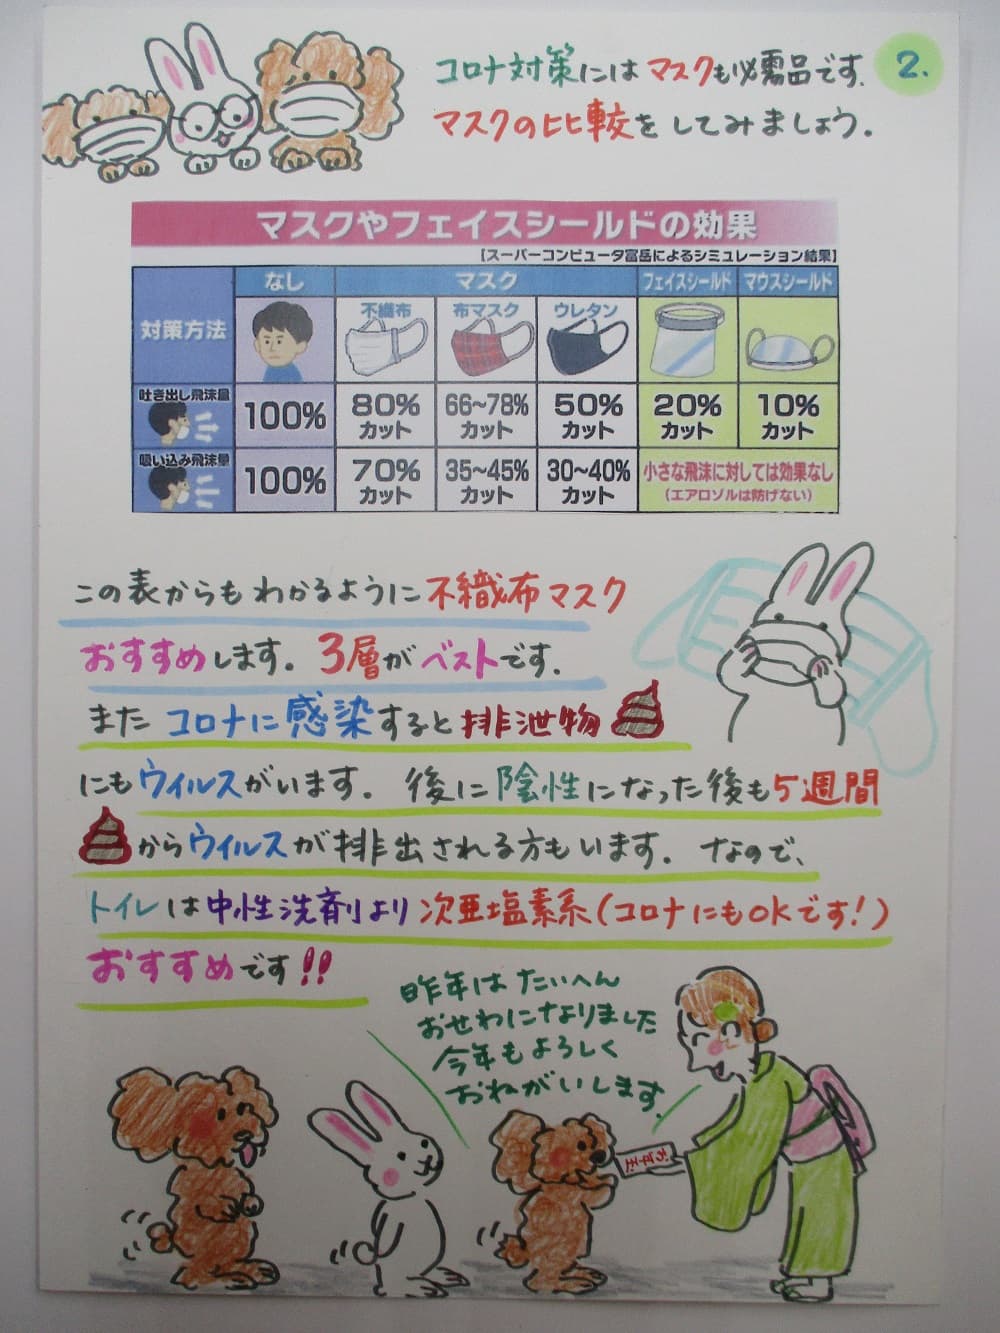 コロナ対策にはマスクも必需品です。
2.
マスクの比較をしてみましょう。
マスクやフェイスシールドの効果
【スーパーコンピュータ富岳によるシミュレーション結果】
対策方法 なし マスク フェイスシールド マウスシールド
不織布 布マスク ウレタン
吐き出し飛沫量 100% 80%カット 66~78%カット 50%カット 20%カット 10%カット
吸い込み飛沫量 100% 70%カット 35~45%カット 30~40%カット 小さな飛沫に対しては効果なし
(エアロゾルは防げない)
この表からもわかるように不織布マスク
おすすめします。3層がベストです。
またコロナに感染すると排泄物
にもウィルスがいます。後に陰性になった後も5週間
からウィルスが排出される方もいます。なので、
トイレは中性洗剤より次亜塩素系(コロナにもOKです!)
おすすめです!!
昨年はたいへん
おせわになりました
今年もよろしく
おねがいします。
お年玉